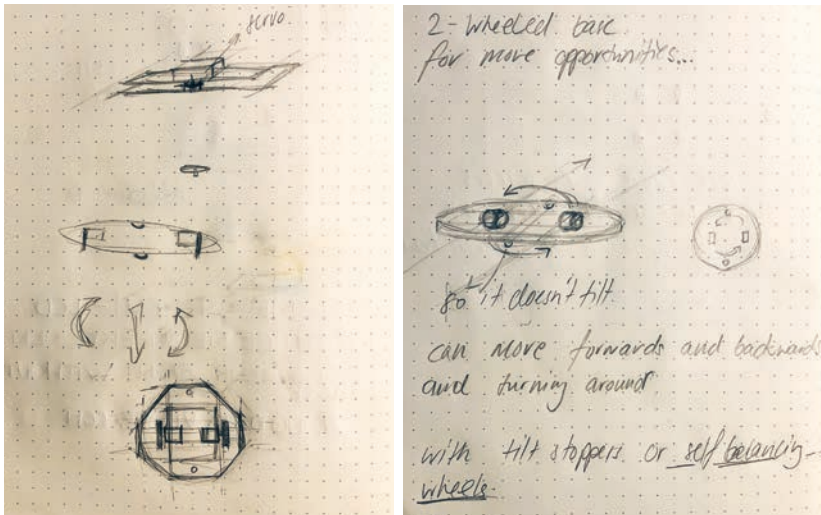 servo
2-wheeled base
for more opportunities...
so it doesn't tilt
can move forwards and backwards
and turning around
with tilt stoppers or self balancing-
wheels.